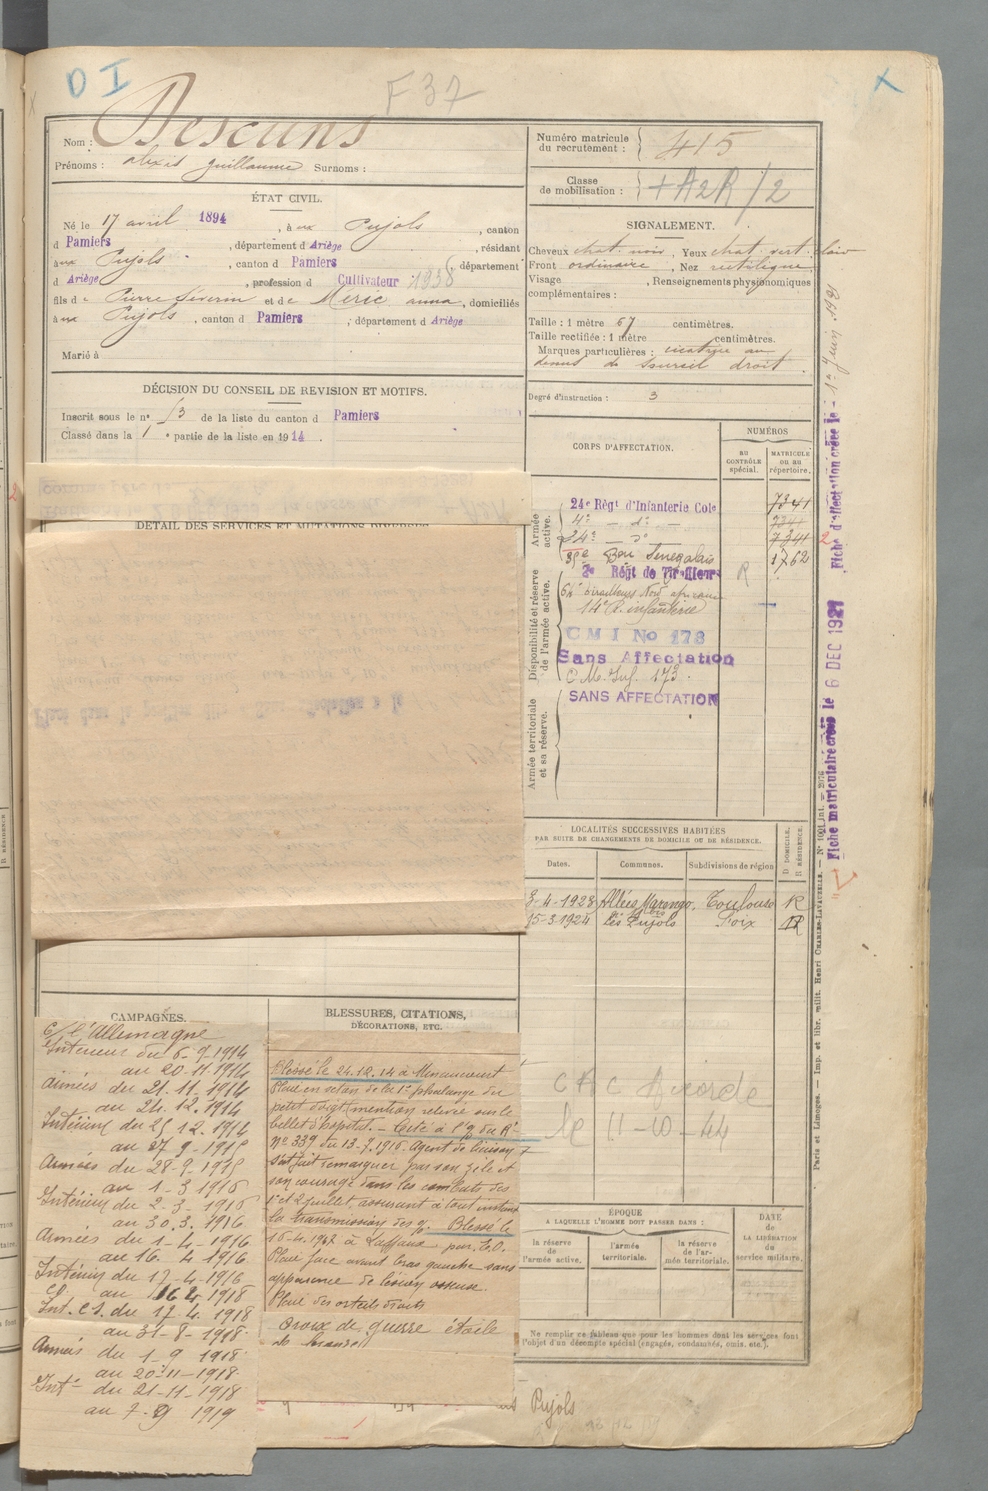 D I
F 37
Nom : Descuns
Prénoms : alexis guillaume Surnoms :
ÉTAT CIVIL.
Né le 17 avril 1894, à aux Pujols, canton
d Pamiers, département d Ariège, résidant
à aux Pujols, canton d Pamiers, département
d Ariège, profession d Cultivateur 1938
fils de Pierre Séverin et de Meric anna, domiciliés
à aux Pujols, canton d Pamiers, département d Ariège
Marié à
DÉCISION DU CONSEIL DE REVISION ET MOTIFS.
Inscrit sous le n° 53 de la liste du canton d Pamiers
Classé dans la 1e partie de la liste en 1914.
DÉTAIL DES SERVICES ET MUTATIONS DIVERSES.
CAMPAGNES.
c/ l'Allemagne
Intérieur du 6-9-1914
au 20-11-1914
Armées du 21.11.1914
au 24.12.1914
Intérieur du 25 12.1914
au 27 9-1915
Armées du 28-9-1915
au 1-3 1916
Intérieur du 2-3-1916
au 30 3. 1916
Armées du 1-4-1916
au 16. 4-1916
Intérieur du 17-4-1916
au 16 4-1918
Int. CS. du 17-4.1918
au 31-8-1918
Armées du 1-9 1918
au 20-11-1918
Int. du 21-11-1918
au 7-9 1919
BLESSURES, CITATIONS,
DÉCORATIONS, ETC.
Blessé le 24.12.14 à Minaucourt
Plaie en séton de la 1e phalange du
petit doigt (mention relevée sur le
billet d'hôpital. - Cité à l'o/ du Rt
n° 339 du 13-7.1916. Agent de liaison
s'est fait remarquer par son zèle et
son courage dans les combats des
1er et 2 juillet, assurant à tout instant
la transmission des o/. Blessé le
16-4.1917 à Laffaux par E.O.
Plaie face avant bras gauche sans
apparence de lésion osseuse.
Plaie des orteils droits
Croix de guerre étoile
de bronze
Numéro matricule
du recrutement : 415
Classe
de mobilisation : + A2R/2
SIGNALEMENT.
Cheveux chat. noir, Yeux chat. vert. clair
Front ordinaire, Nez rectiligne
Visage , Renseignements physionomiques
complémentaires :
Taille : 1 mètre 67 centimètres.
Taille rectifiée : 1 mètre centimètres.
Marques particulières : cicatrice au
dessus du sourcil droit.
Degré d'instruction : 3
CORPS D'AFFECTATION.
NUMÉROS
AU CONTRÔLE spécial.
MATRICULE ou au répertoire.
Armée active.
24e Régt d'Infanterie Cole 7341
4e - do - 7341
24e - do 7341
35e Bon Senegalais 1762
Disponibilité et réserve de l'armée active.
2e Régt de Tirailleurs R
tirailleurs Nord africains
14e R. infanterie
C M I No 173
Sans Affectation
C.M. Inf. 173.
Armée territoriale et sa réserve.
SANS AFFECTATION
LOCALITÉS SUCCESSIVES HABITÉES
PAR SUITE DE CHANGEMENTS DE DOMICILE OU DE RÉSIDENCE.
Dates. Communes. Subdivisions de région D DOMICILE. R RÉSIDENCE.
3-4-1923 Allées Marengo, Toulouse R
15-3-1924 Les Pujols Foix R
C A C Accordé
le 11-10-44
ÉPOQUE
À LAQUELLE L'HOMME DOIT PASSER DANS :
la réserve de l'armée active.
l'armée territoriale.
la réserve de l'armée territoriale.
DATE de LA LIBÉRATION du service militaire.
Ne remplir ce tableau que pour les hommes dont les services font
l'objet d'un décompte spécial (engagés, condamnés, omis, etc.).
Pujols
Fiche d'affectation créée le 1er Juin 1921
Fiche matriculaire créée le 6 DEC 1927
Paris et Limoges. — Imp. et libr. milit. Henri CHARLES-LAVAUZELLE.